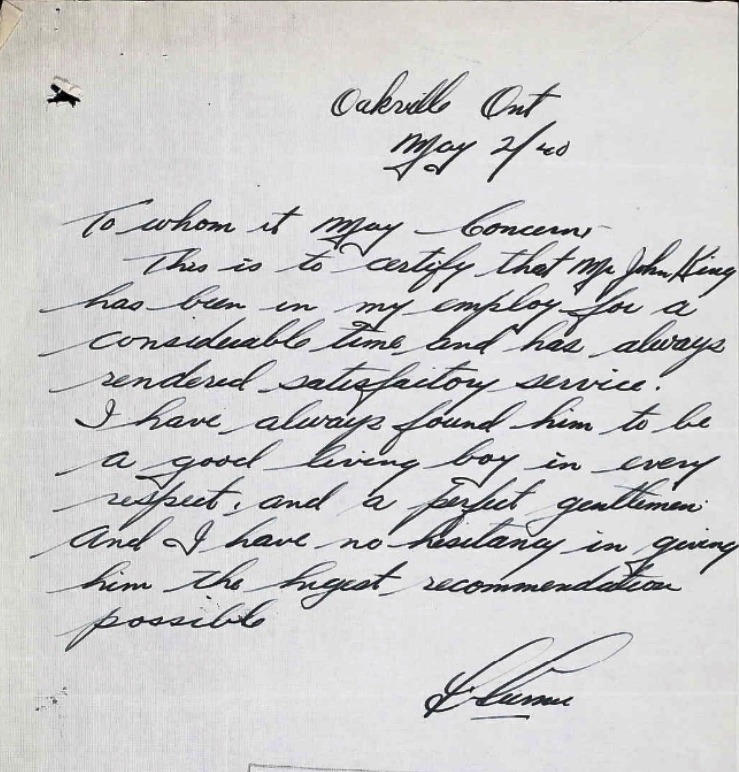 Oakville Ont
May 2/40
To whom it May Concern,
This is to certify that Mr John King
has been in my employ for a
considerable time and has always
rendered satisfactory service.
I have always found him to be
a good living boy in every
respect, and a perfect gentlemen
And I have no hesitancy in giving
him the higest recommendation
possible